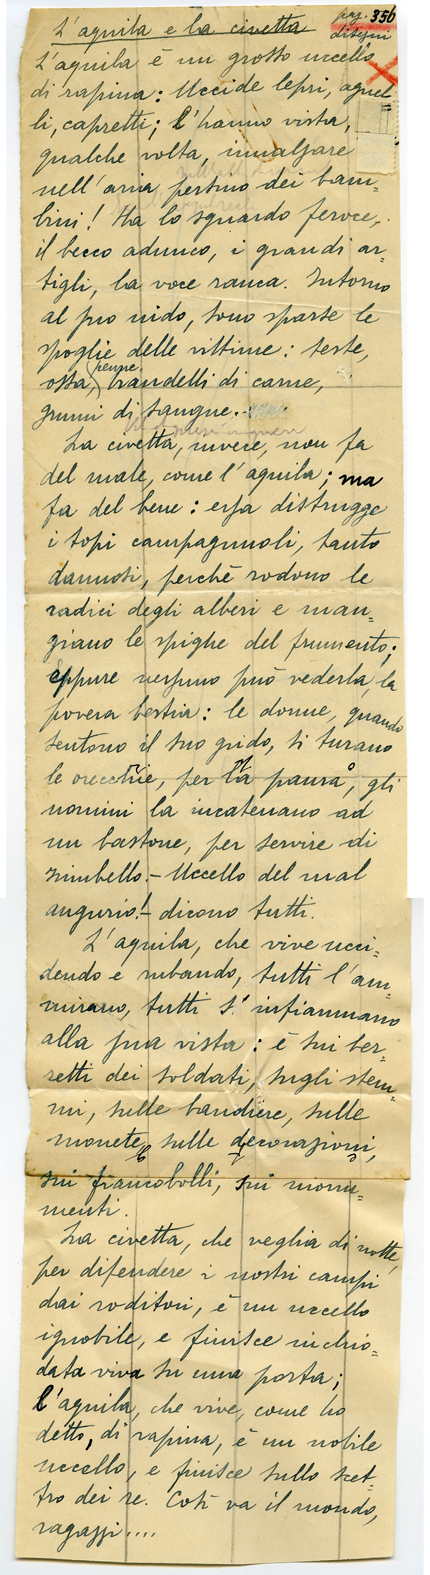 pag. 356
disegni
L'aquila e la civetta
L'aquila è un grosso uccello
di rapina: Uccide lepri, agnel=
li, capretti; l'hanno vista,
qualche volta, innalzare
nell'aria persino dei bam=
bini! Ha lo sguardo feroce,
il becco adunco, i grandi ar=
tigli, la voce rauca. Intorno
al suo nido, sono sparse le
spoglie delle vittime: teste,
ossa, penne, brandelli di carne,
grumi di sangue.
La civetta, invece, non fa
del male, come l'aquila; ma
fa del bene: essa distrugge
i topi campagnuoli, tanto
dannosi, perchè rodono le
radici degli alberi e man=
giano le spighe del frumento;
eppure nessuno può vederla, la
povera bestia: le donne, quando
sentono il suo grido, si turano
le orecchie, per la paura, gli
uomini la incatenano ad
un bastone, per servire di
zimbello. - Uccello del mal
augurio! - dicono tutti.
L'aquila, che vive ucci=
dendo e rubando, tutti l'am=
mirano, tutti s'infiammano
alla sua vista: è sui ber=
retti dei soldati, sugli stem=
mi, sulle bandiere, sulle
monete, sulle decorazioni,
sui francobolli, sui monu=
menti.
La civetta, che veglia di notte,
per difendere i nostri campi
dai roditori, è un uccello
ignobile, e finisce inchio=
data viva su una porta;
l'aquila, che vive, come ho
detto, di rapina, è un nobile
uccello, e finisce sullo scet=
tro dei re. Così va il mondo,
ragazzi....